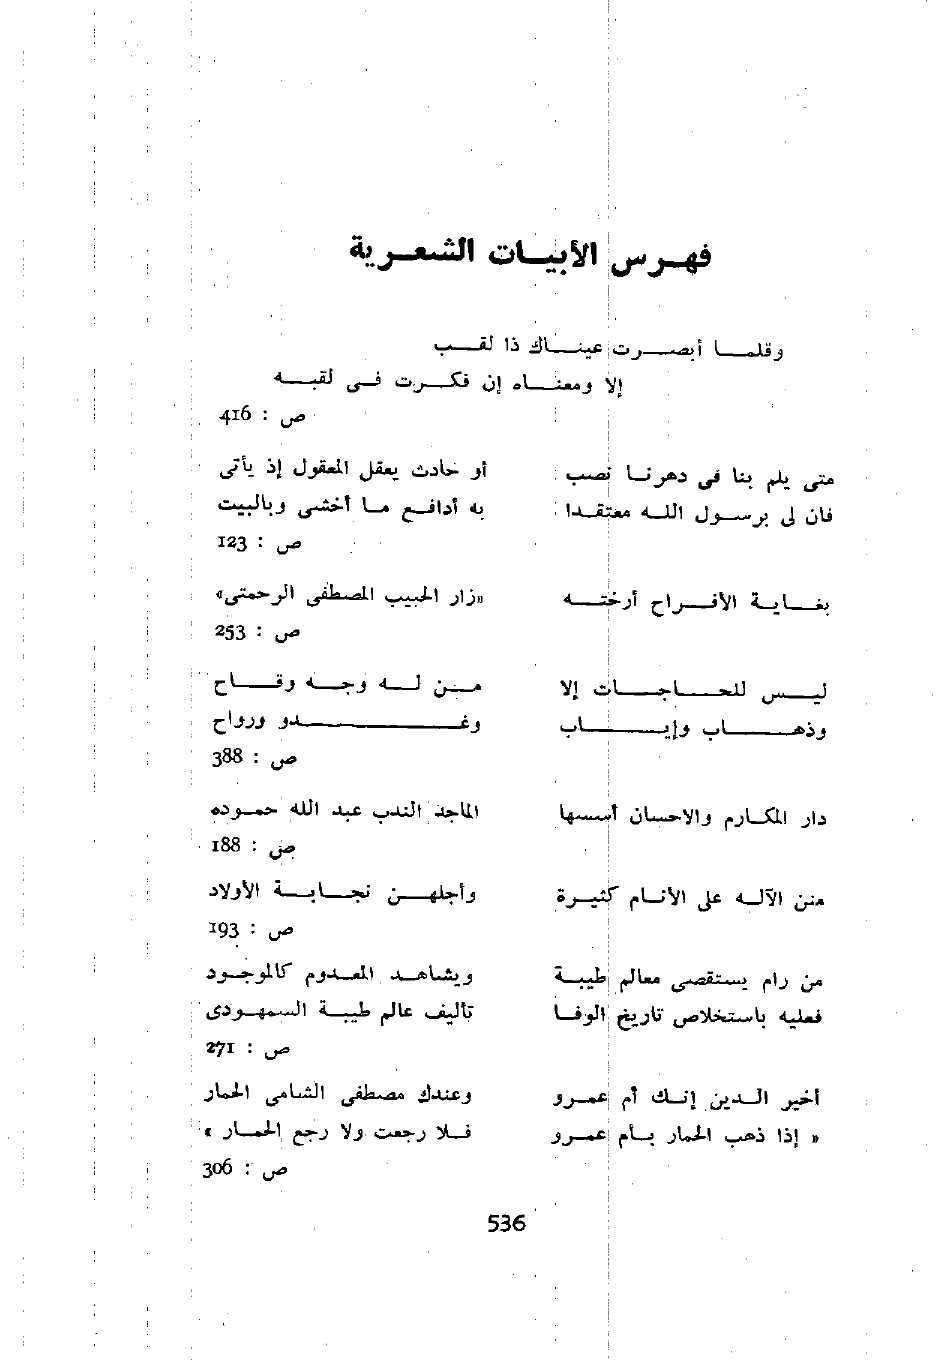 فهرس الأبيات الشعرية
وقلما أبصرت عيناك ذا لقب
إلا ومعناه إن فكرت فى لقبه
ص : 416
متى يلم بنا فى دهرنا نصب أو حادث يعقل المعقول إذ يأتى
فان لى برسول الله معتقدا به أدافع ما أخشى وبالبيت
ص : 123
بغاية الأفراح أرخته «زار الحبيب المصطفى الرحمتى»
ص : 253
ليس للحاجات إلا من له وجه وقاح
وذهاب وإياب وغدو ورواح
ص : 388
دار المكارم والاحسان أسسها الماجد الندب عبد الله حموده
ص : 188
منن الآله على الأنام كثيرة وأجلهن نجابة الأولاد
ص : 193
من رام يستقصى معالم طيبة ويشاهد المعدوم كالموجود
فعليه باستخلاص تاريخ الوفا تأليف عالم طيبة السمهودى
ص : 271
أخير الدين إنك أم عمرو وعندك مصطفى الشامى الحمار
« إذا ذهب الحمار بأم عمرو فلا رجعت ولا رجع الحمار »
ص : 306
536